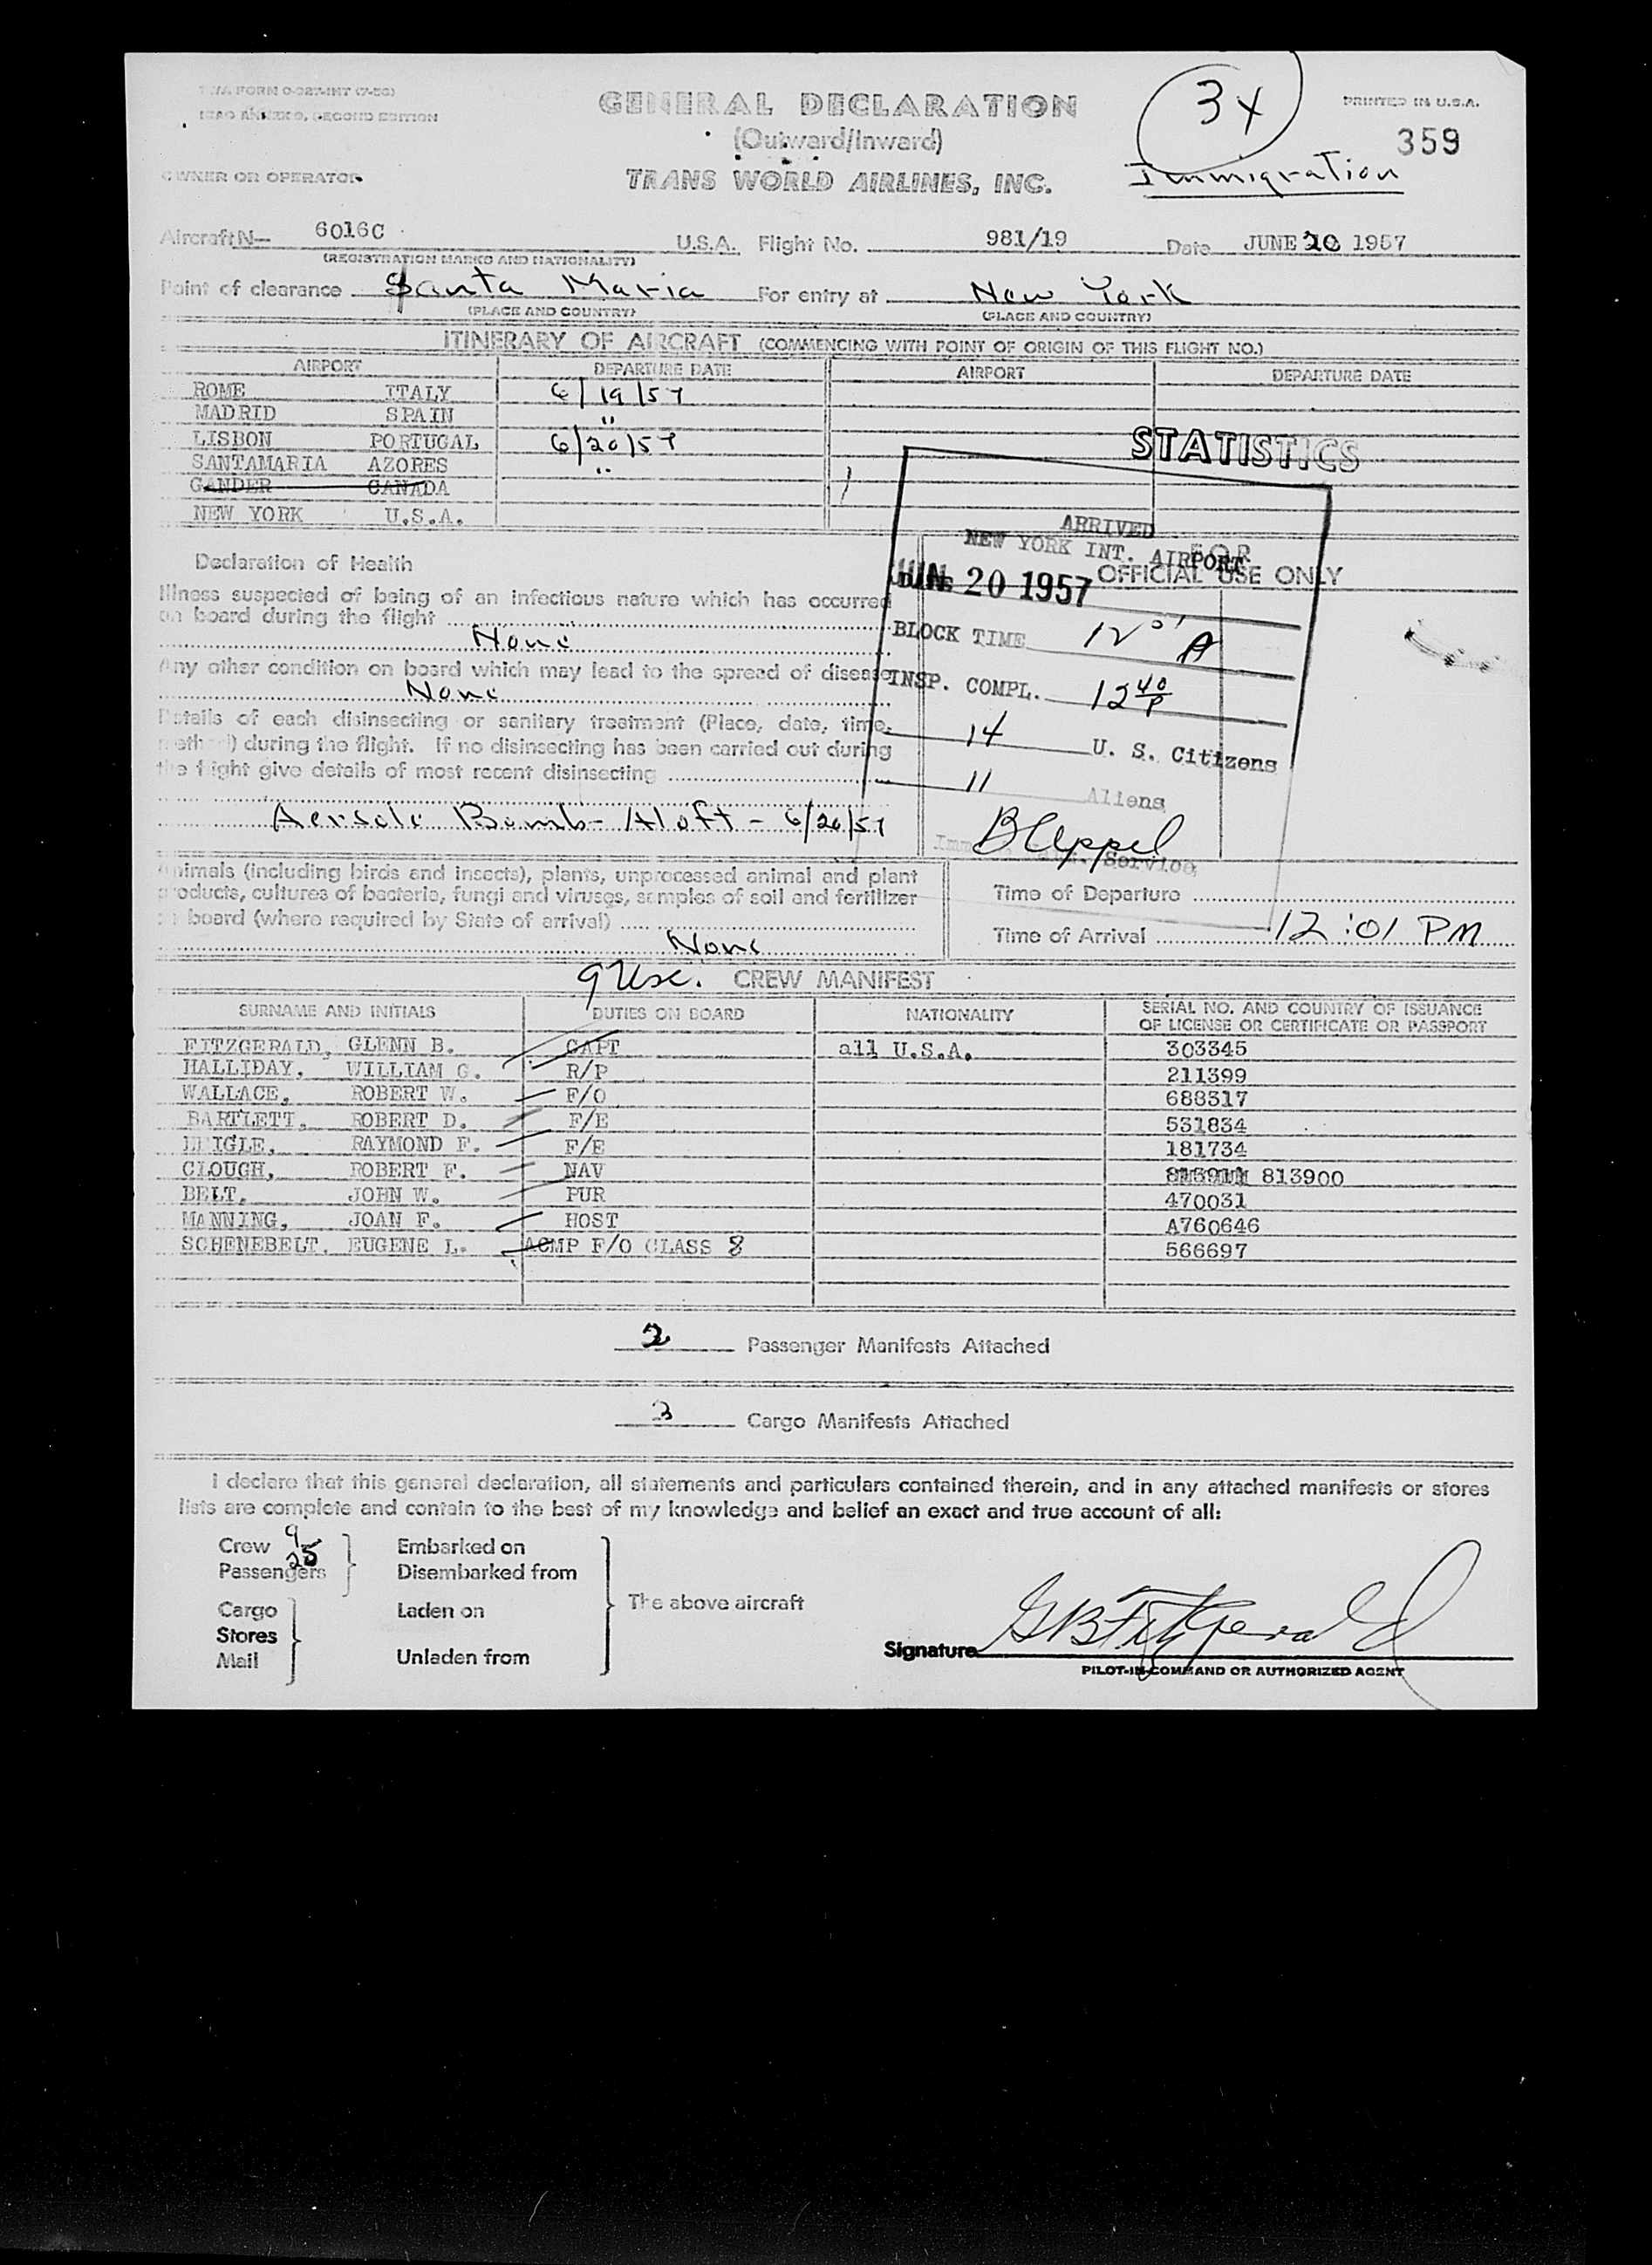 TWA FORM O-327-INT (7-56)
ICAO ANNEX 9, SECOND EDITION
GENERAL DECLARATION
(Outward/Inward)
3x
PRINTED IN U.S.A.
359
OWNER OR OPERATOR
TRANS WORLD AIRLINES, INC.
Immigration
Aircraft N— 6016C U.S.A. Flight No. 981/19 Date JUNE 20 1957
(REGISTRATION MARKS AND NATIONALITY)
Point of clearance Santa Maria For entry at New York
(PLACE AND COUNTRY) (PLACE AND COUNTRY)
ITINERARY OF AIRCRAFT (COMMENCING WITH POINT OF ORIGIN OF THIS FLIGHT NO.)
AIRPORT DEPARTURE DATE AIRPORT DEPARTURE DATE
ROME ITALY 6/19/57
MADRID SPAIN "
LISBON PORTUGAL 6/20/57
STATISTICS
SANTAMARIA AZORES "
GANDER CANADA
NEW YORK U.S.A.
ARRIVED
NEW YORK INT. AIRPORT
FOR
OFFICIAL USE ONLY
JUN 20 1957
BLOCK TIME 12 01 A
INSP. COMPL. 12 40 P
14 U. S. Citizens
11 Aliens
Service
Declaration of Health
Illness suspected of being of an infectious nature which has occurred
on board during the flight
None
Any other condition on board which may lead to the spread of disease
None
Details of each disinsecting or sanitary treatment (Place, date, time,
method) during the flight. If no disinsecting has been carried out during
the flight give details of most recent disinsecting
Aersole Bomb - Aloft - 6/20/57
Animals (including birds and insects), plants, unprocessed animal and plant
products, cultures of bacteria, fungi and viruses, samples of soil and fertilizer
on board (where required by State of arrival)
None
Time of Departure
Time of Arrival 12:01 PM
9 Usc. CREW MANIFEST
SURNAME AND INITIALS DUTIES ON BOARD NATIONALITY SERIAL NO. AND COUNTRY OF ISSUANCE
OF LICENSE OR CERTIFICATE OR PASSPORT
FITZGERALD, GLENN B. CAPT all U.S.A. 303345
HALLIDAY, WILLIAM G. R/P 211399
WALLACE, ROBERT W. F/O 688317
BARTLETT, ROBERT D. F/E 531834
LEIGLE, RAYMOND F. F/E 181734
CLOUGH, ROBERT F. NAV 813900
BELT, JOHN W. PUR 470031
MANNING, JOAN F. HOST A760646
SCHENEBELT, EUGENE L. ACMP F/O CLASS 8 566697
2 Passenger Manifests Attached
3 Cargo Manifests Attached
I declare that this general declaration, all statements and particulars contained therein, and in any attached manifests or stores
lists are complete and contain to the best of my knowledge and belief an exact and true account of all:
Crew 9 Embarked on
Passengers 25 Disembarked from
The above aircraft
Cargo Laden on
Stores
Mail Unladen from
Signature GB Fitzgerald
PILOT-IN-COMMAND OR AUTHORIZED AGENT